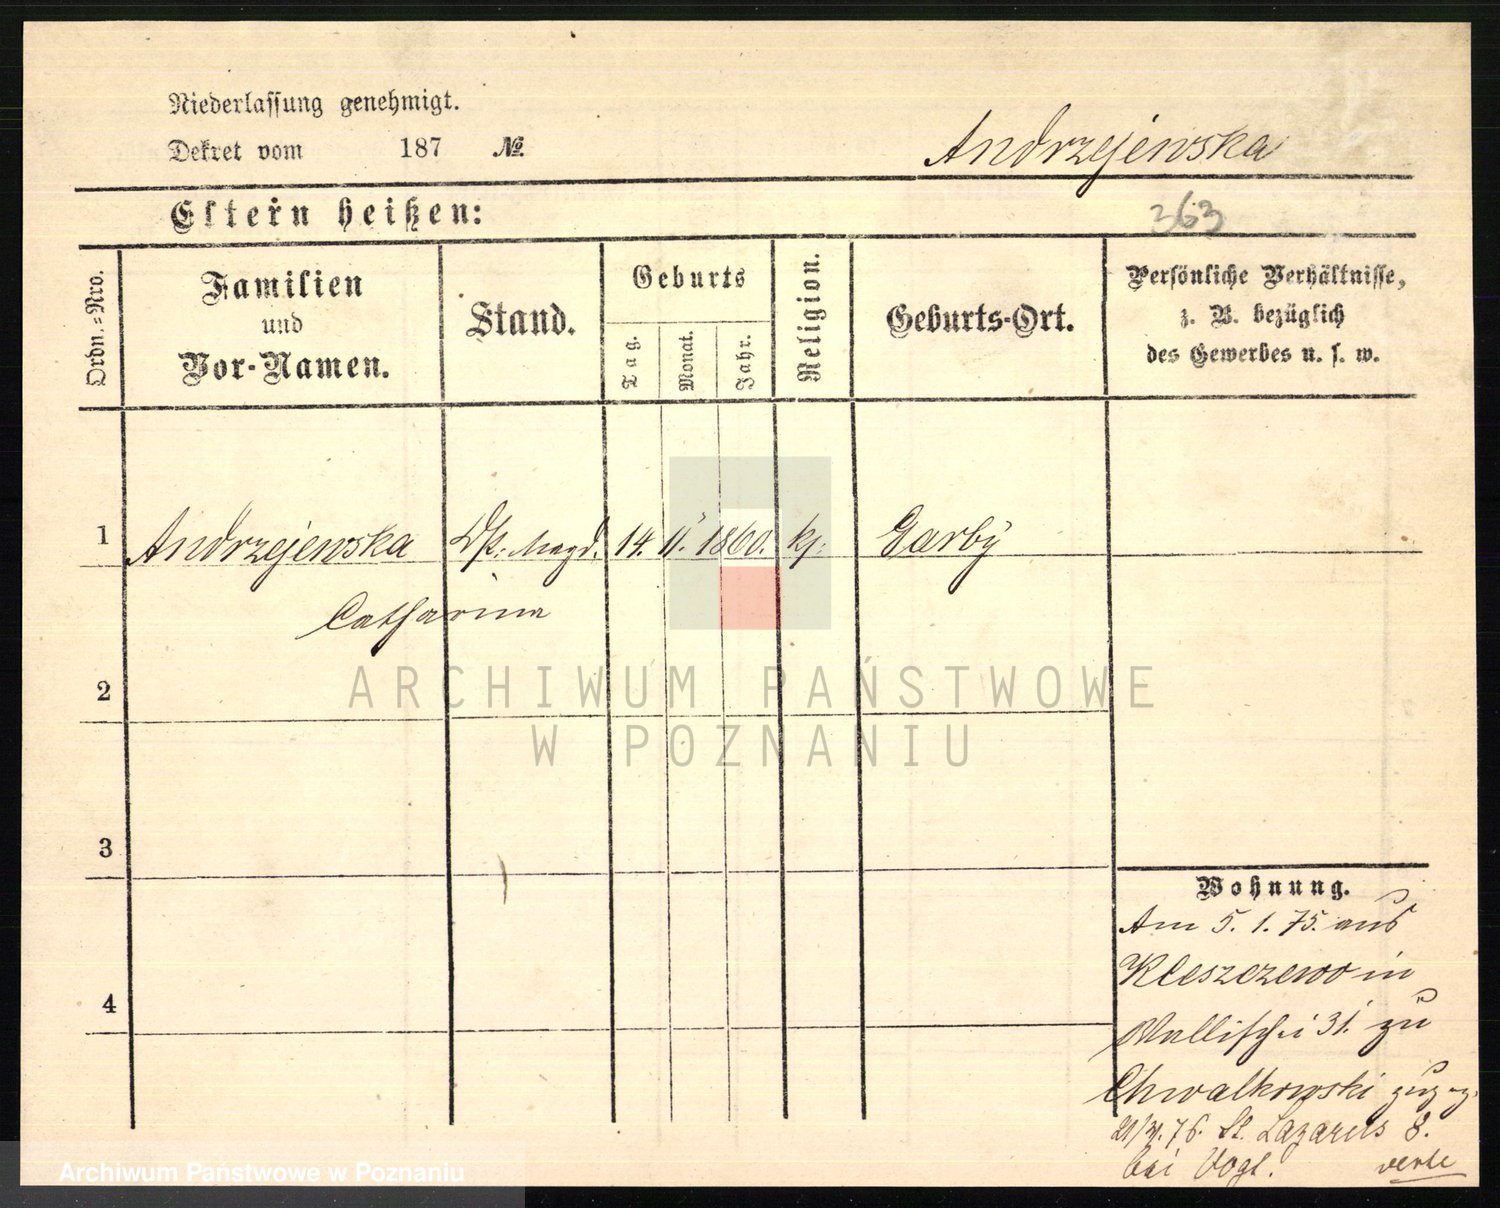 Niederlassung genehmigt.
Dekret vom 187 №
Andrzejewska
Eltern heißen:
363
Ordn.=Nro.
Familien
und
Vor-Namen.
Stand.
Geburts
Tag.
Monat.
Jahr.
Religion.
Geburts-Ort.
Persönliche Verhältnisse,
z. B. bezüglich
des Gewerbes u. s. w.
1 Andrzejewska Magd. 14. 11. 1860. kj. Garby
Catharina
2
3
4
Wohnung.
Am 5. 1. 75. aus
Kleszczewo in
Wallischei 31. zu
Chwalkowski
76. St. Lazarus 8.
bei Vogt.
verte
ARCHIWUM PAŃSTWOWE
W POZNANIU
Archiwum Państwowe w Poznaniu